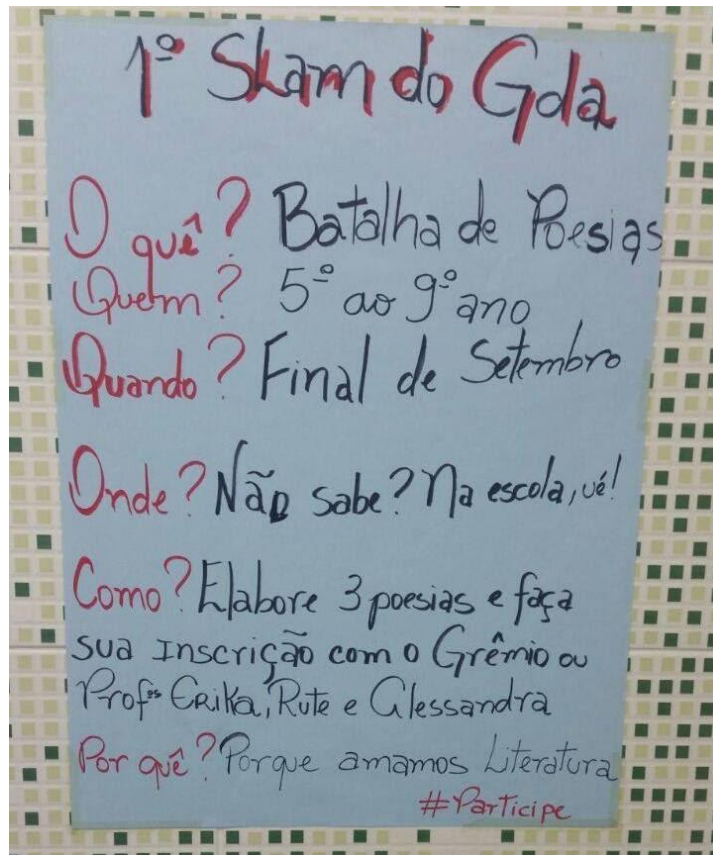 1º Slam do Gda
O quê? Batalha de Poesias
Quem? 5º ao 9º ano
Quando? Final de Setembro
Onde? Não sabe? Na escola, ué!
Como? Elabore 3 poesias e faça
sua Inscrição com o Grêmio ou
Profªs Erika, Rute e Alessandra
Por quê? Porque amamos Literatura
#Participe